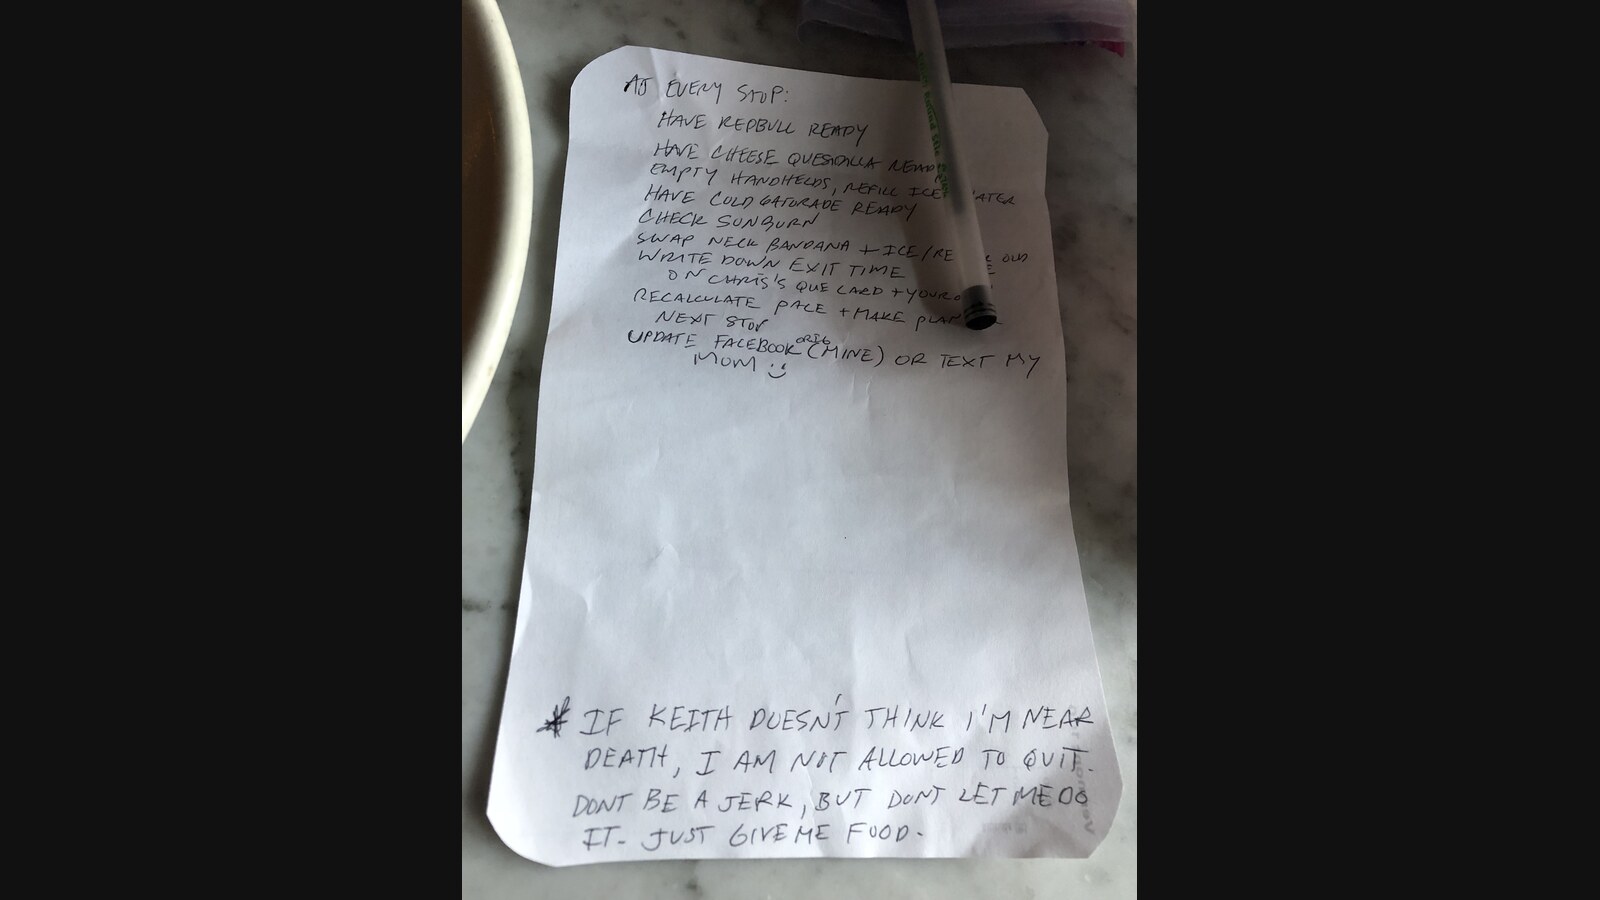 AT EVERY STOP:
HAVE REDBULL READY
HAVE CHEESE QUESIDILLA READY
EMPTY HANDHELDS, REFILL ICE WATER
HAVE COLD GATORADE READY
CHECK SUNBURN
SWAP NECK BANDANA + ICE/ OLD
WRITE DOWN EXIT TIME
ON CHRIS'S QUE CARD +
RECALCULATE PACE + MAKE PLAN
NEXT STOP
UPDATE FACEBOOK (MINE) OR TEXT MY
MOM :)
* IF KEITH DOESN'T THINK I'M NEAR
DEATH, I AM NOT ALLOWED TO QUIT.
DONT BE A JERK, BUT DONT LET ME DO
IT. JUST GIVE ME FOOD.